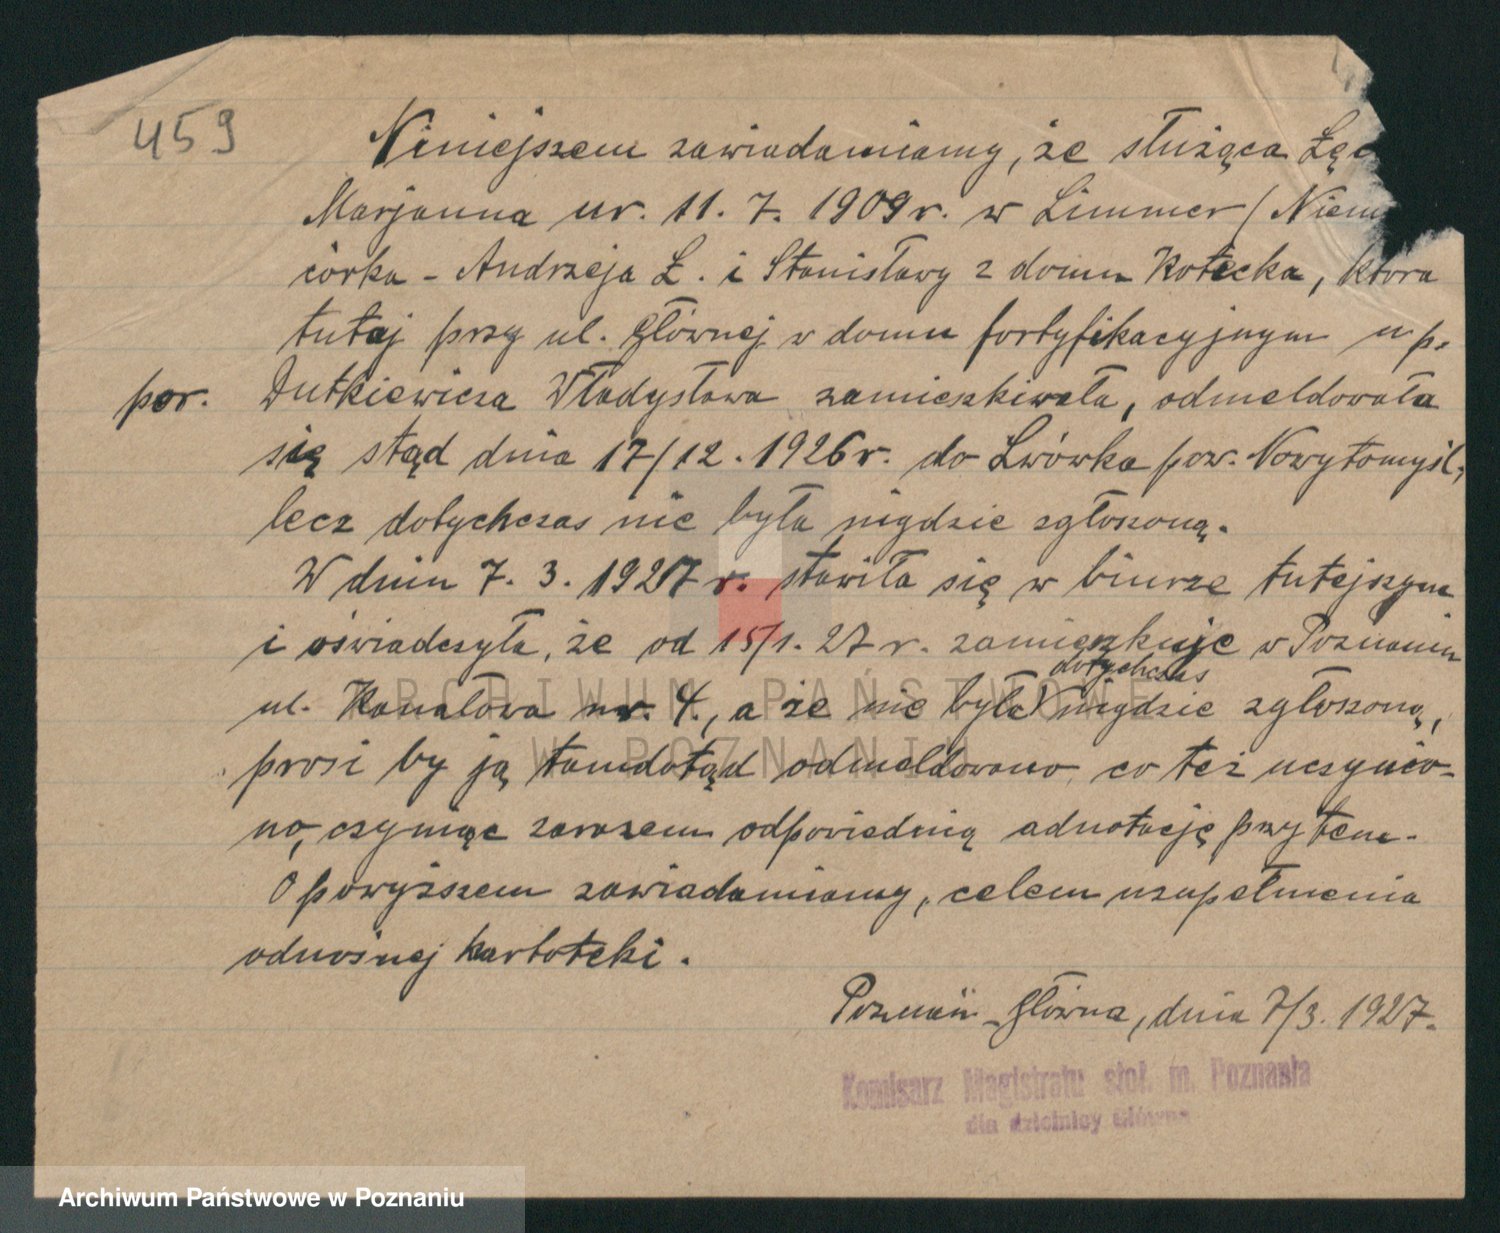 459
Niniejszem zawiadamiamy, że służąca Łęc
Marjanna ur. 11. 7. 1909 r. w Limmer (Niem
córka - Andrzeja Ł. i Stanisławy z domu Kotecka, która
tutaj przy ul. Głównej w domu fortyfikacyjnym u p.
por. Dutkiewicza Władysława zamieszkiwała, odmeldowała
się stąd dnia 17/12. 1926 r. do Lwówka pow. Nowytomyśl,
lecz dotychczas nie była nigdzie zgłoszoną.
W dniu 7. 3. 1927 r. stawiła się w biurze tutejszym
i oświadczyła, że od 15/1. 27 r. zamieszkuje w Poznaniu
dotychczas
ul. Kanałowa nr. 4., a że nie była nigdzie zgłoszoną,
prosi by ją tamdotąd odmeldowano co też uczynio-
no, czyniąc zarazem odpowiednią adnotację przytem.
O powyższem zawiadamiamy, celem uzupełnienia
odnośnej kartoteki.
Poznań - Główna, dnia 7/3. 1927.
Komisarz Magistratu stoł. m. Poznania
dla dzielnicy Główna
ARCHIWUM PAŃSTWOWE
W POZNANIU
Archiwum Państwowe w Poznaniu